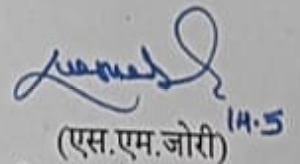 14.5
(एस.एम.जोरी)